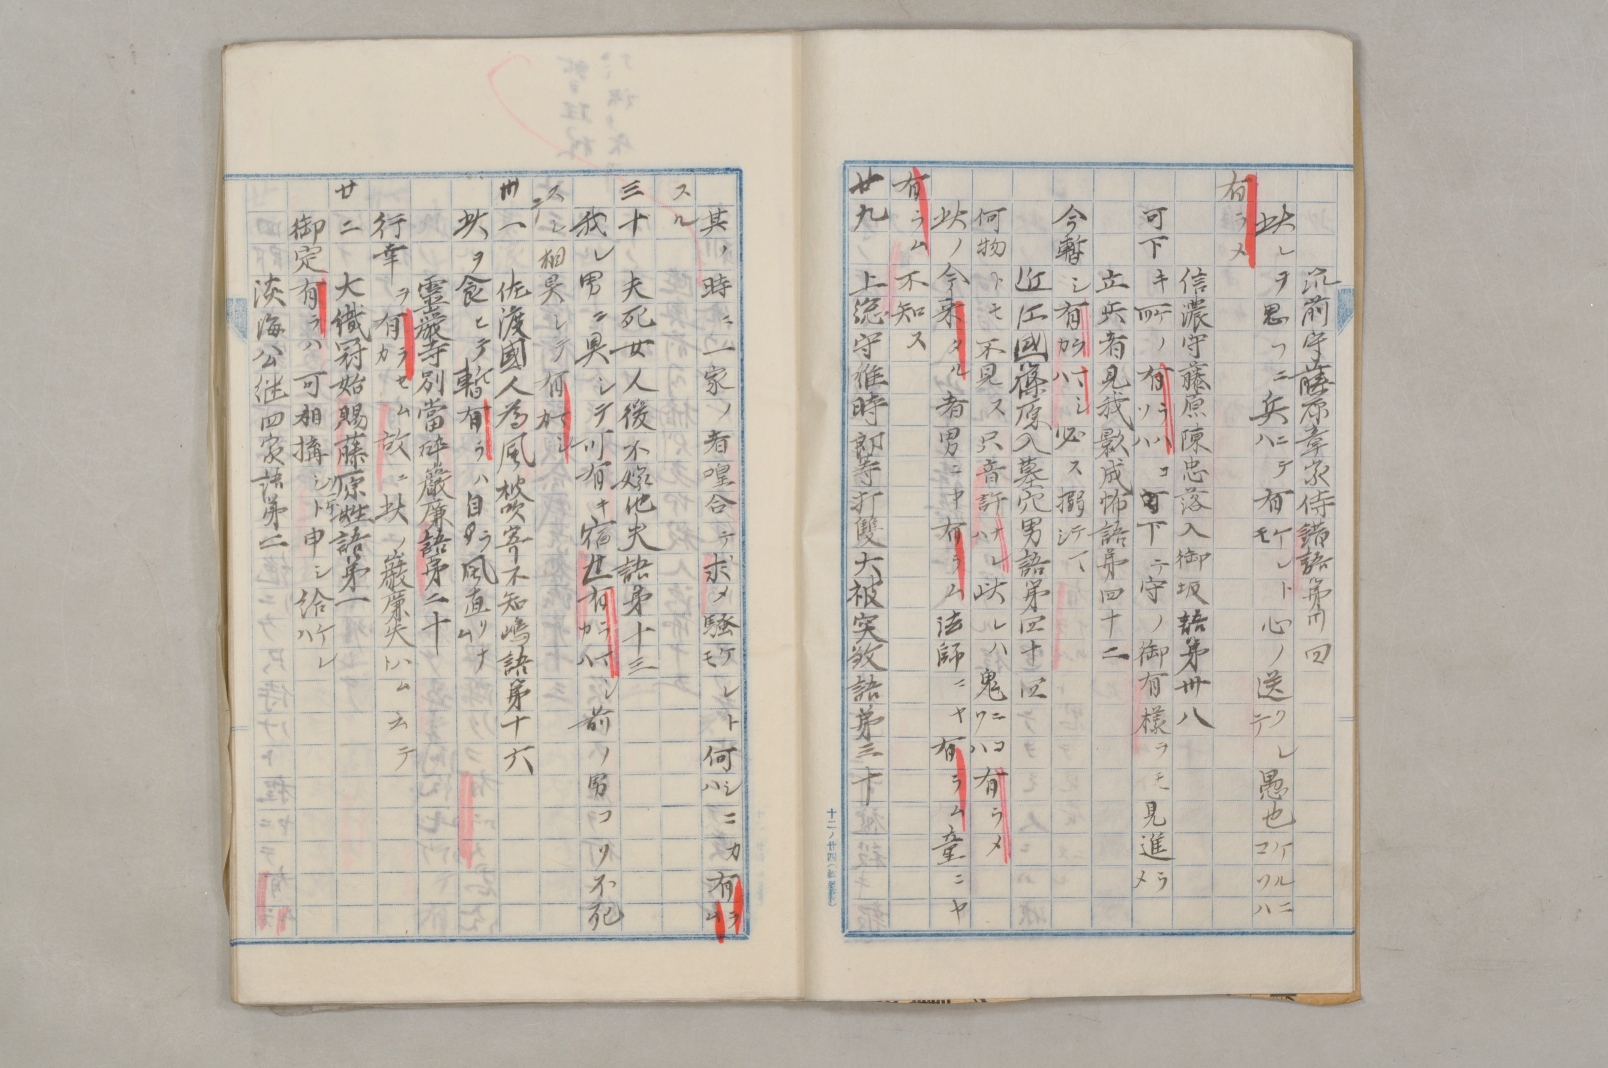 筑前守藤原章家侍錯語第卅四
此レヲ思フニ兵ニテ有ケレバ心ノ送クレテ愚也ケルニコソハ
有ラメ
信濃守藤原陳忠落入御坂語第卅八
可下キ所ノ有ラバコソ下テ守ノ御有様ヲモ見進ラメ
立兵者見我影成怖語第四十二
今暫シ有ラマシカバ必ス搦シテマ
近江國篠原入墓穴男語第四十四
何物トモ不見ス只音許ナレバ此レハ鬼ニコソハ有ラメ
此ノ今来タル者男ニヤ有ラム法師ニヤ有ラム童ニヤ
有ラム不知ス
廿九 上総守維時郎等打雙六被突殺語第三十
其ノ時ニ一家ノ者喤合テ求メ騒ケレトモ何ハシニカ有ラム
スル
三十 夫死女人後不嫁他夫語第十三
我レ男ニ具シテ可有キ宿世有ラマシカバ前ノ男コソ不死
スシテ相具シテ何カマシ
卅一 佐渡國人為風被吹寄不知嶋語第十六
此ヲ食ヒテ暫モ有ラバ自然ラ風直リナム
霊巌寺別當砕巌廉語第二十
行幸ヲ有ラセム故ニ此ノ巌廉失ハムトテ
廿二 大織冠始賜藤原姓語第一
御定有ラバ可相搆シト申シ給ケレバ
淡海公継四家語第二